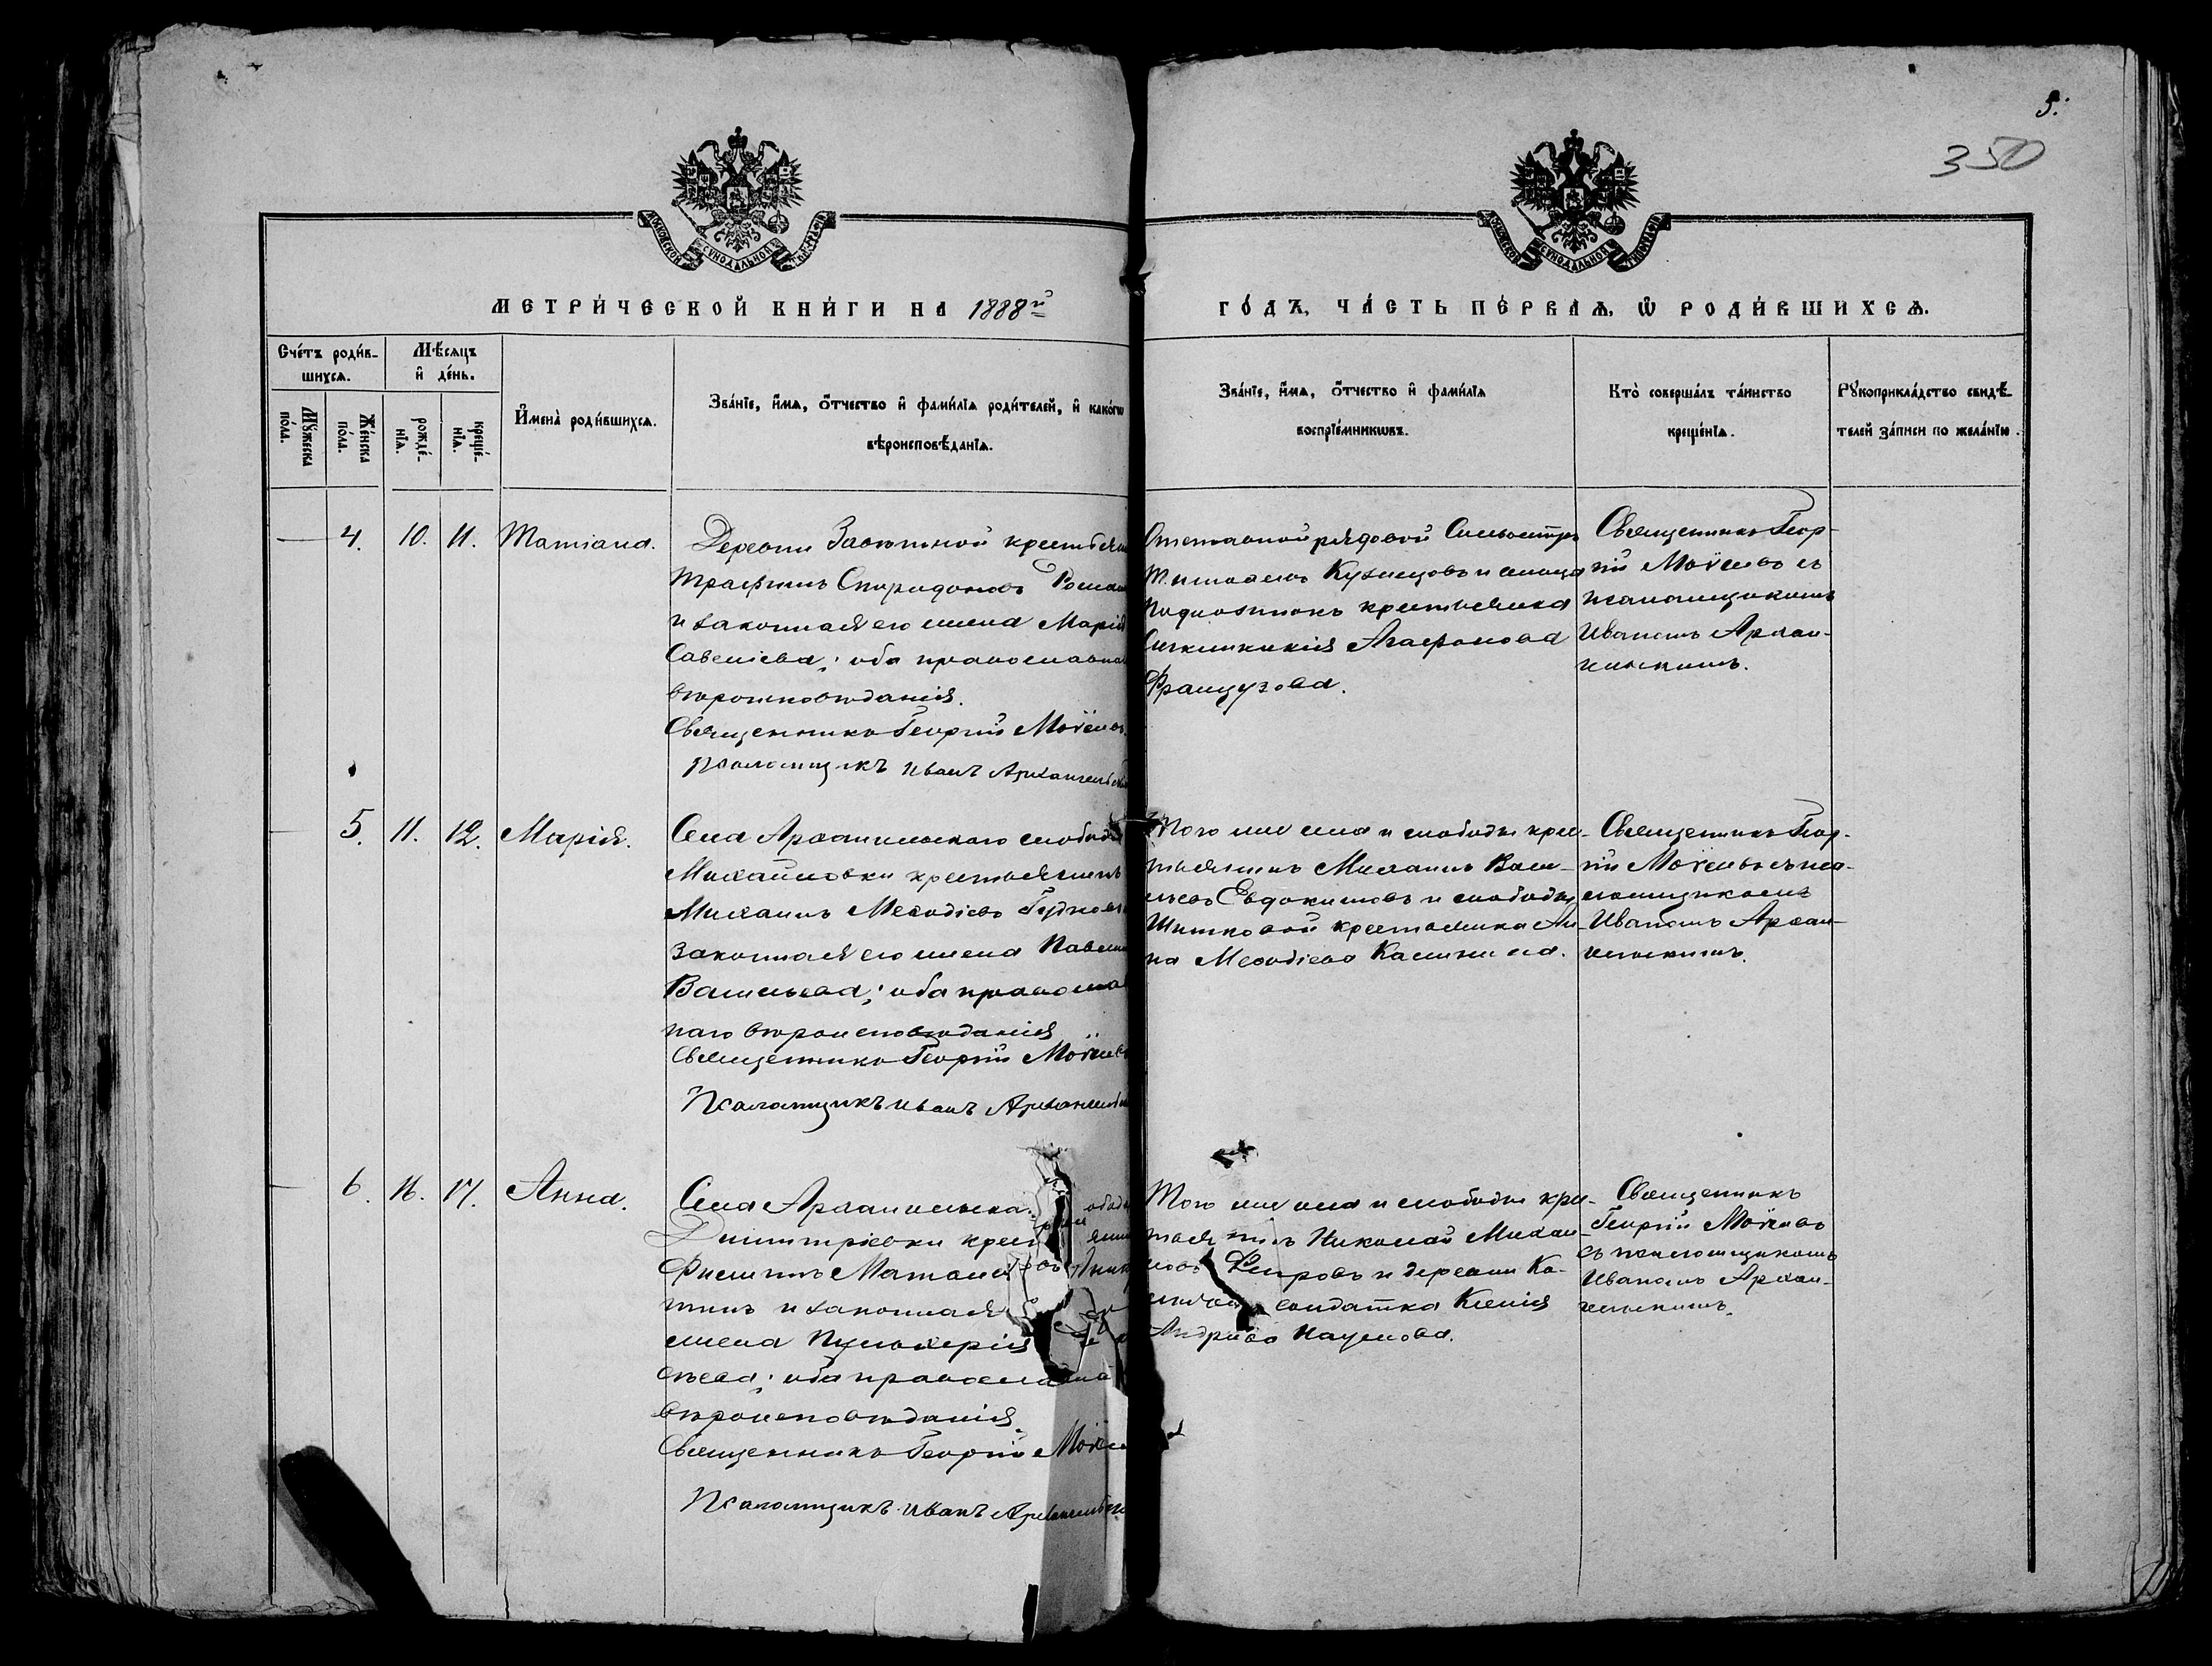 5.
350
МЕТРИ́ЧЕСКОЙ КНИ́ГИ НА 1888й
ГО́ДЪ, ЧА́СТЬ ПЕ́РВАѦ, Ѡ҆ РОДИ́ВШИХСѦ.
Сче́тъ роди́в-
шихсѧ.
Мꙋ́жеска
по́ла.
Же́нска
по́ла.
Мѣ́сѧцъ
и҆ де́нь.
рожде́-
нїѧ.
креще́-
нїѧ.
И҆мена̀ роди́вшихсѧ.
Зва́нїе, и҆́мѧ, ѻ҆́тчество и҆ фами́лїѧ роди́телей, и҆ како́гѡ
вѣроисповѣ́данїѧ.
Зва́нїе, и҆́мѧ, ѻ҆́тчество и҆ фами́лїѧ
воспрїе́мникѡвъ.
Кто̀ соверша́лъ та́инство
креще́нїѧ.
Рꙋкоприкла́дство свидѣ́-
телей за́писи по жела́нїю.
4. 10. 11. Татіана.
Деревни крестьян
Трофимъ Спиридоновъ
и законная его жена Марія
Савельева; оба православна
вѣроисповѣданія.
Священникъ Георгій
Псаломщикъ Иванъ Архангельск
Отставной рядовой Сильвестръ
Кузнецовъ и
крестьянка
Агафонова
Французова.
Священникъ Геор-
гій съ
псаломщикомъ
Иваномъ Архан-
гельскимъ.
5. 11. 12. Марія.
Села Архангельскаго слобод
Михайловки крестьянинъ
Михаилъ Меѳодіевъ
законная его жена
Васильева; оба правосла
наго вѣроисповѣданія
Священникъ Георгій
Псаломщикъ Иванъ Архангельск
Того же села и слободы крес-
тьянинъ Михаилъ Васи-
льевъ Евдокимовъ и слободы
Шитковой крестьянка Ан-
на Меѳодіева Калинина.
Священникъ Геор-
гій съ пса-
ломщикомъ
Иваномъ Архан-
гельскимъ.
6. 16. 17. Анна.
Села Архангельска
Димитріевки крест
Филиппъ
тинъ и законная
жена Пульхерія
ева; оба православна
вѣроисповѣданія.
Священникъ Георгій
Псаломщикъ Иванъ Архангельск
Того же села и слободы крес-
тьянинъ Николай Михай-
ловъ и деревни Ка-
солдатка Ксенія
Андреева Наумова.
Священникъ
Георгій
съ псаломщикомъ
Иваномъ Архан-
гельскимъ.